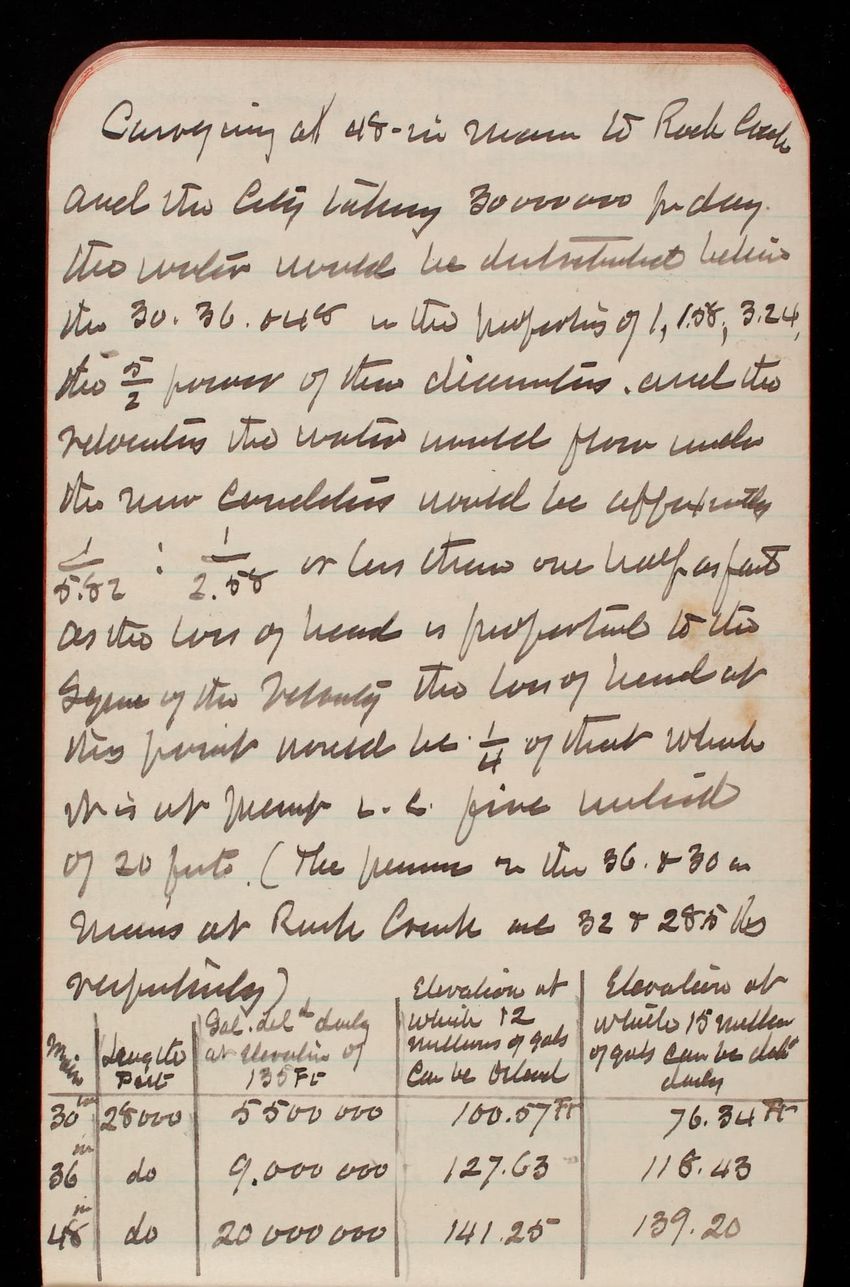 Conveying a 48-in main to Rock Creek
and the City taking 30000000 pr day.
the water would be distributed between
the 30. 36. & 48 in the proportions of 1, 1.58, 3.24,
the 5/2 power of their diameters. and the
velocities the water would flow under
the new conditions would be approximately
1/5.82 : 1/2.58 or less than one half as fast
as the loss of head is proportional to the
Square of the Velocity the loss of head at
this point would be 1/4 of that which
it is at present i.e. five instead
of 20 feet. (The pressures in the 36. & 30 in
mains at Rock Creek are 32 & 28.5 lbs
respectively)
Main | Length Feet | Gal. deld daily at elevation of 135 Ft | Elevation at which 12 millions of gals can be delivered | Elevation at which 15 million of gals can be deld daily
30 in | 28000 | 5500 000 | 100.57 Ft | 76.34 Ft
36 in | do | 9.000 000 | 127.63 | 118.43
48 in | do | 20 000 000 | 141.25 | 139.20